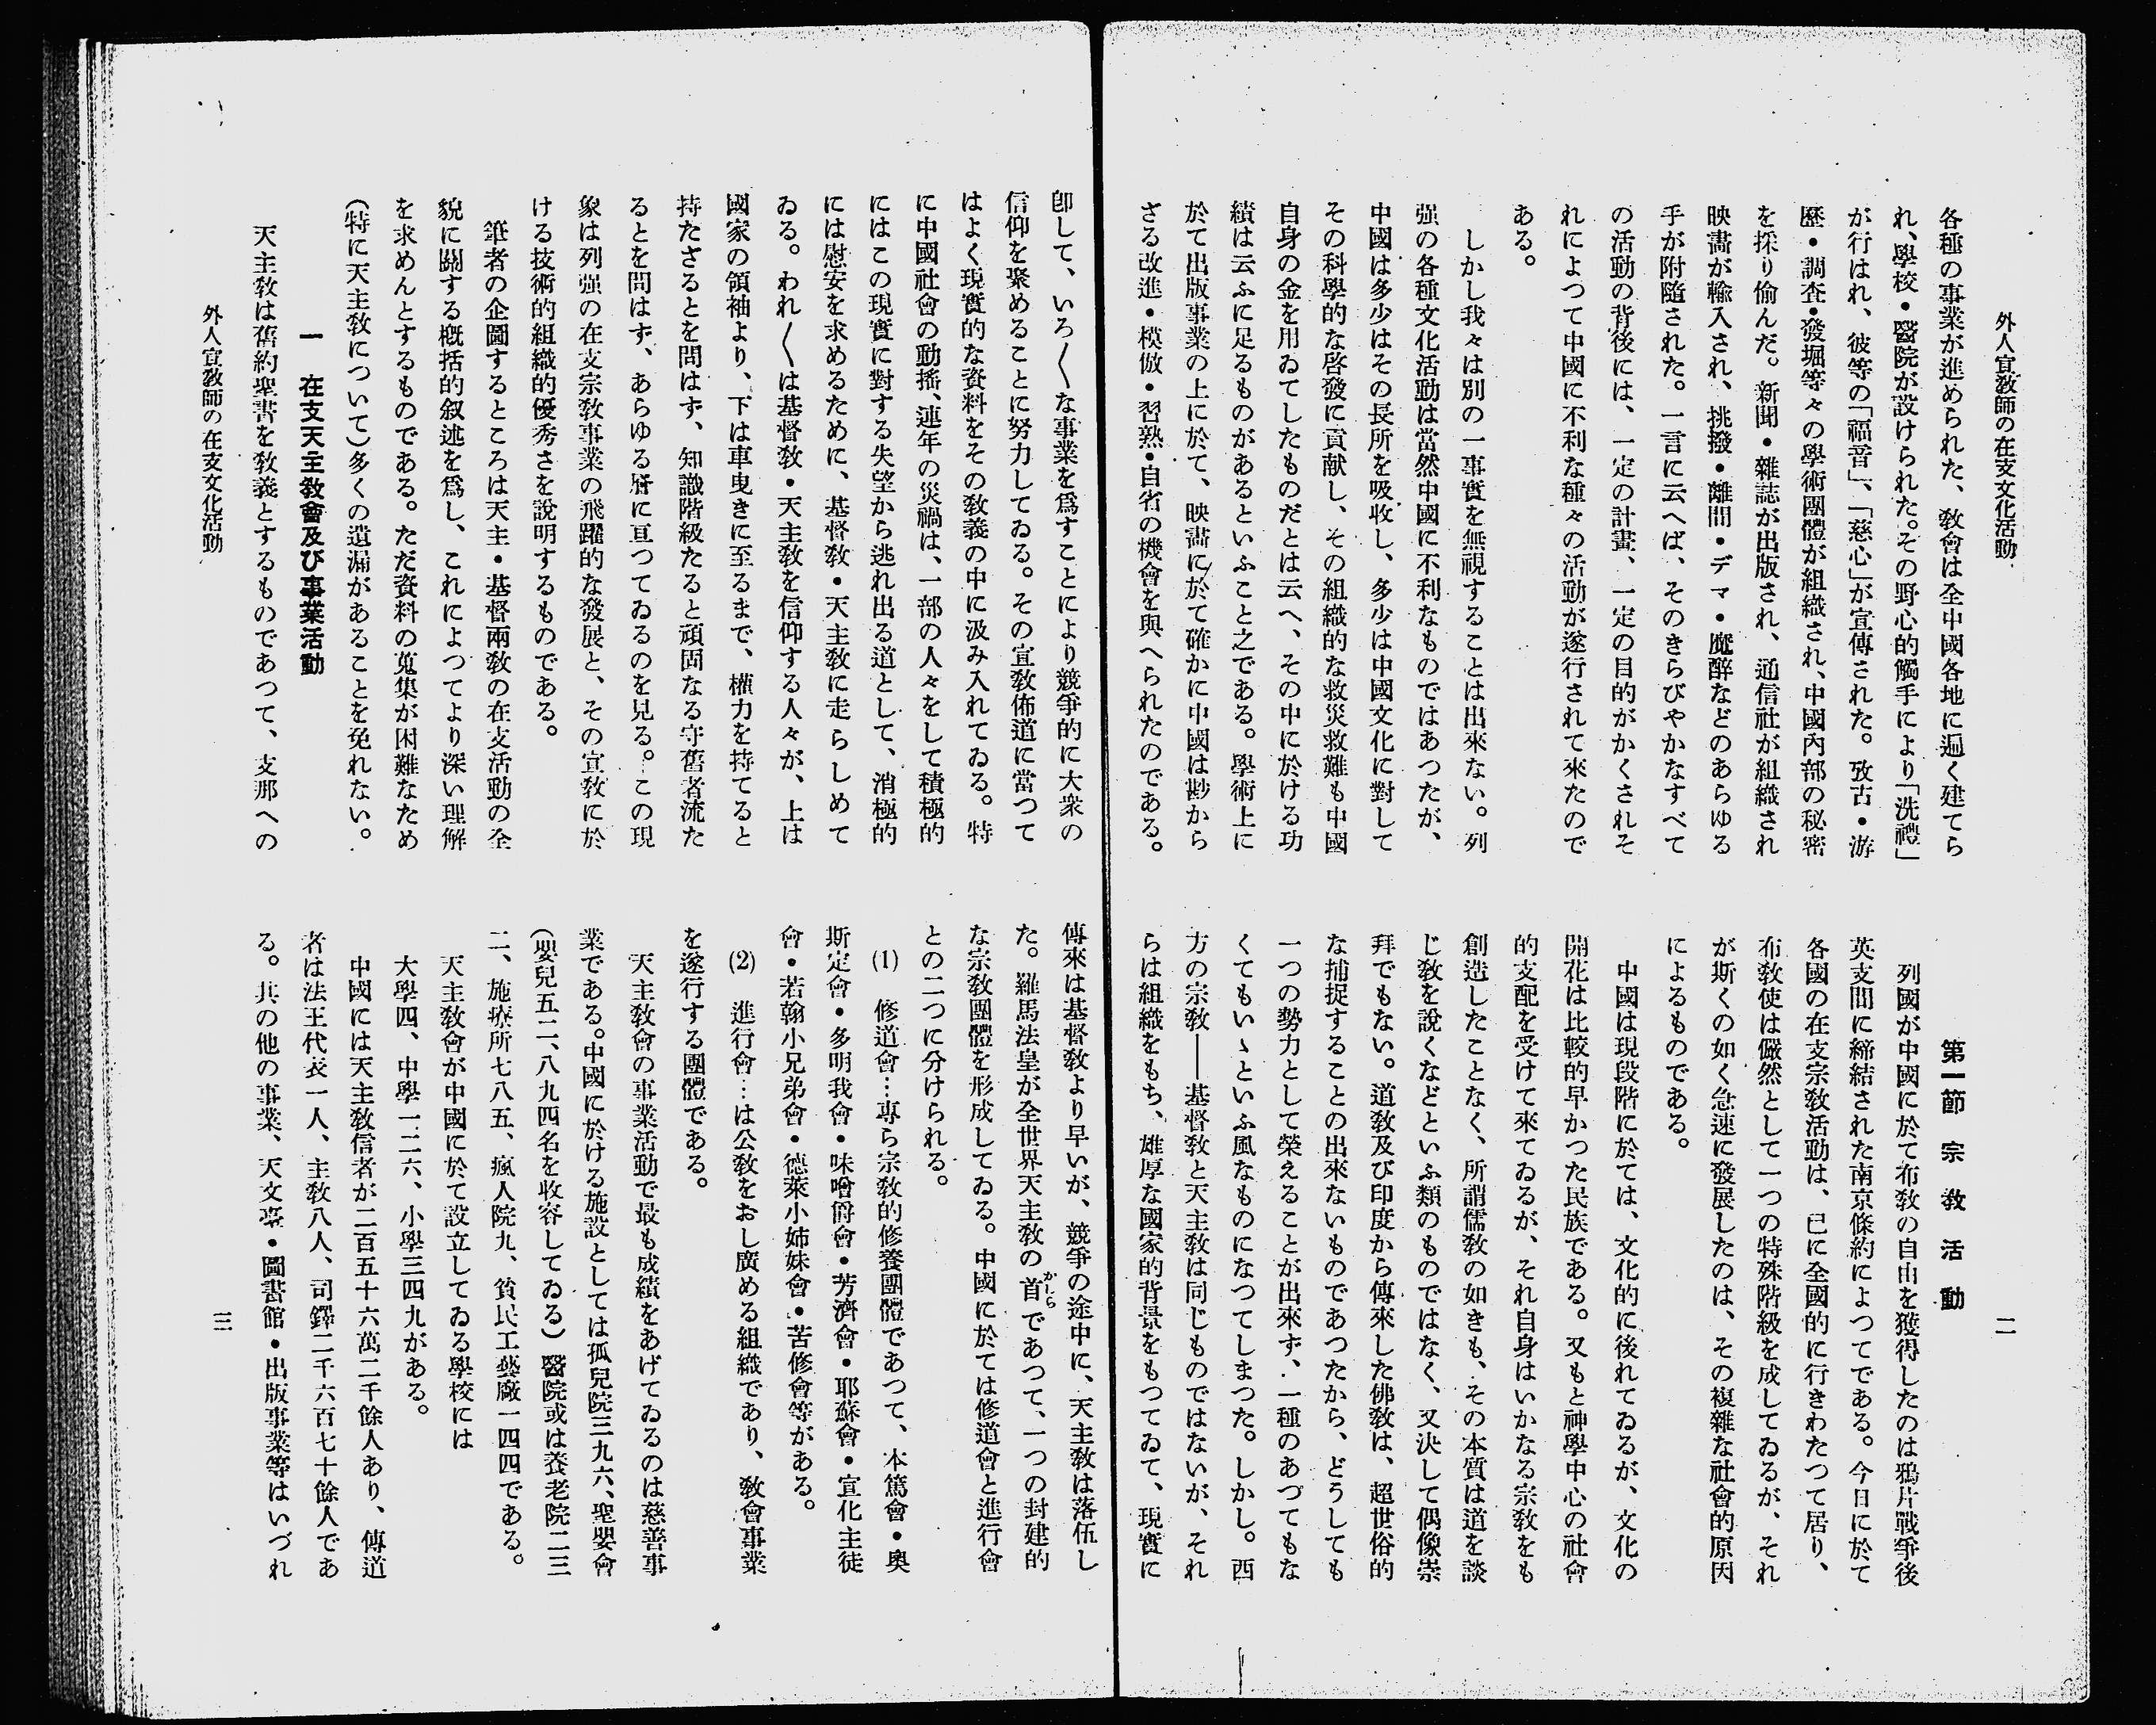 外人宣教師の在支文化活動
二
各種の事業が進められた、教會は全中國各地に遍く建てら
れ、學校・醫院が設けられた。その野心的觸手により「洗禮」
が行はれ、彼等の「福音」、「慈心」が宣傳された。攷古・游
歷・調査・發堀等々の學術團體が組織され、中國內部の秘密
を採り偷んだ。新聞・雜誌が出版され、通信社が組織され
映畵が輸入され、挑撥・離間・デマ・魔醉などのあらゆる
手が附隨された。一言に云へば、そのきらびやかなすべて
の活動の背後には、一定の計畫、一定の目的がかくされそ
れによつて中國に不利な種々の活動が遂行されて來たので
ある。
しかし我々は別の一事實を無視することは出來ない。列
强の各種文化活動は當然中國に不利なものではあつたが、
中國は多少はその長所を吸收し、多少は中國文化に對して
その科學的な啓發に貢献し、その組織的な救災救難も中國
自身の金を用ゐてしたものだとは云へ、その中に於ける功
績は云ふに足るものがあるといふこと之である。學術上に
於て出版事業の上に於て、映畵に於て確かに中國は尠から
ざる改進・模倣・習熟・自省の機會を與へられたのである。
第一節 宗教活動
列國が中國に於て布教の自由を獲得したのは鴉片戰爭後
英支間に締結された南京條約によつてである。今日に於て
各國の在支宗教活動は、已に全國的に行きわたつて居り、
布教使は儼然として一つの特殊階級を成してゐるが、それ
が斯くの如く急速に發展したのは、その複雜な社會的原因
によるものである。
中國は現段階に於ては、文化的に後れてゐるが、文化の
開花は比較的早かつた民族である。又もと神學中心の社會
的支配を受けて來てゐるが、それ自身はいかなる宗教をも
創造したことなく、所謂儒教の如きも、その本質は道を談
じ教を說くなどといふ類のものではなく、又決して偶像崇
拜でもない。道教及び印度から傳來した佛教は、超世俗的
な捕捉することの出來ないものであつたから、どうしても
一つの勢力として榮えることが出來ず、一種のあつてもな
くてもいゝといふ風なものになつてしまつた。しかし。西
方の宗教――基督教と天主教は同じものではないが、それ
らは組織をもち、雄厚な國家的背景をもつてゐて、現實に
卽して、いろ〱な事業を爲すことにより競爭的に大衆の
信仰を聚めることに努力してゐる。その宣教佈道に當つて
はよく現實的な資料をその教義の中に汲み入れてゐる。特
に中國社會の動搖、連年の災禍は、一部の人々をして積極的
にはこの現實に對する失望から逃れ出る道として、消極的
には慰安を求めるために、基督教・天主教に走らしめて
ゐる。われ〱は基督教・天主教を信仰する人々が、上は
國家の領袖より、下は車曳きに至るまで、權力を持てると
持たざるとを問はず、知識階級たると頑固なる守舊者流た
るとを問はず、あらゆる層に亘つてゐるのを見る。この現
象は列强の在支宗教事業の飛躍的な發展と、その宣教に於
ける技術的組織的優秀さを說明するものである。
筆者の企圖するところは天主・基督兩教の在支活動の全
貌に關する概括的叙述を爲し、これによつてより深い理解
を求めんとするものである。ただ資料の蒐集が困難なため
(特に天主教について)多くの遺漏があることを免れない。
一 在支天主教會及び事業活動
天主教は舊約聖書を教義とするものであつて、支那への
傳來は基督教より早いが、競爭の途中に、天主教は落伍し
た。羅馬法皇が全世界天主教の首かしらであつて、一つの封建的
な宗教團體を形成してゐる。中國に於ては修道會と進行會
との二つに分けられる。
(1) 修道會…專ら宗教的修養團體であつて、本篤會・奧
斯定會・多明我會・味噌爵會・芳濟會・耶蘇會・宣化主徒
會・若翰小兄弟會・德萊小姉妹會・苦修會等がある。
(2) 進行會…は公教をおし廣める組織であり、教會事業
を遂行する團體である。
天主教會の事業活動で最も成績をあげてゐるのは慈善事
業である。中國に於ける施設としては孤兒院三九六、聖嬰會
(嬰兒五二、八九四名を收容してゐる)醫院或は養老院二三
二、施療所七八五、瘋人院九、貧民工藝廠一四四である。
天主教會が中國に於て設立してゐる學校には
大學四、中學一二六、小學三四九がある。
中國には天主教信者が二百五十六萬二千餘人あり、傳道
者は法王代表一人、主教八人、司鐸二千六百七十餘人であ
る。其の他の事業、天文臺・圖書館・出版事業等はいづれ
外人宣教師の在支文化活動
三